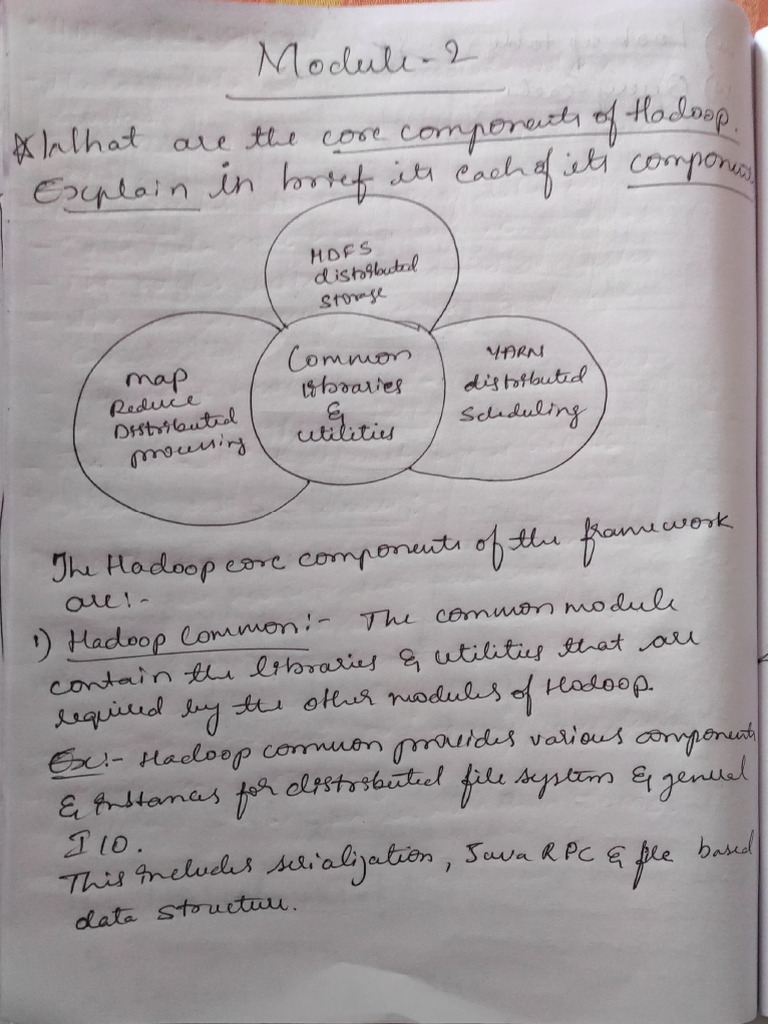 Module-2
* What are the core components of Hadoop.
Explain in brief its each of its components
HDFS
distributed
storage
Map
Reduce
Distributed
processing
Common
libraries
&
utilities
YARN
distributed
Scheduling
The Hadoop core components of the framework
are:-
1) Hadoop Common:- The common module
contain the libraries & utilities that are
required by the other modules of Hadoop.
Ex:- Hadoop common provides various components
& instances for distributed file system & general
I/O.
This includes serialization, Java RPC & file based
data structure.